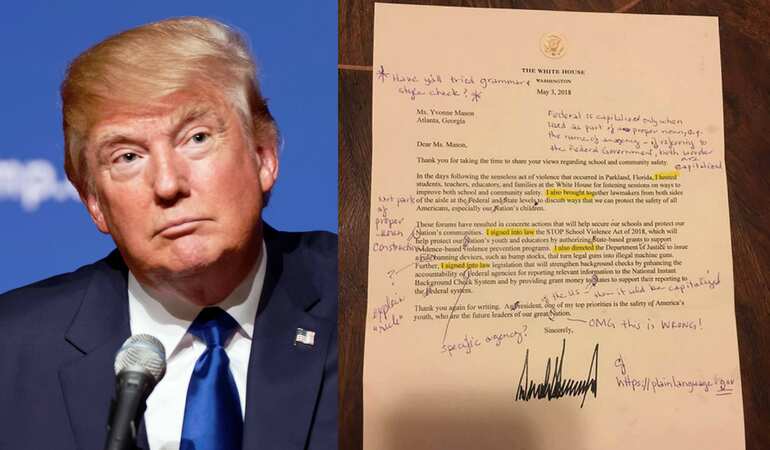 mp.c
THE WHITE HOUSE
WASHINGTON
May 3, 2018
* Have y'all tried grammar &
style check? *
Ms. Yvonne Mason
Atlanta, Georgia
Federal is capitalized only when
used as part of a proper noun, e.g.
the name of an agency - if referring to
the Federal Government, both words
are
capitalized
Dear Ms. Mason,
Thank you for taking the time to share your views regarding school and community safety.
In the days following the senseless act of violence that occurred in Parkland, Florida, I hosted
students, teachers, educators, and families at the White House for listening sessions on ways to
improve both school and community safety. I also brought together lawmakers from both sides
of the aisle at the Federal and State levels to discuss ways that we can protect the safety of all
Americans, especially our Nation's children.
Not part
of
proper
noun
construction
These forums have resulted in concrete actions that will help secure our schools and protect our
Nation's communities. I signed into law the STOP School Violence Act of 2018, which will
help protect our Nation's youth and educators by authorizing State-based grants to support
evidence-based violence prevention programs. I also directed the Department of Justice to issue
a rule banning devices, such as bump stocks, that turn legal guns into illegal machine guns.
Further, I signed into law legislation that will strengthen background checks by enhancing the
accountability of Federal agencies for reporting relevant information to the National Instant
Background Check System and by providing grant money to states to support their reporting to
the Federal system.
?
explain
"rule"
of the US - then it'd be capitalized
Thank you again for writing. As President, one of my top priorities is the safety of America's
youth, who are the future leaders of our great Nation.
specific agency?
OMG this is WRONG!
Sincerely,
cf
https://plainlanguage.gov